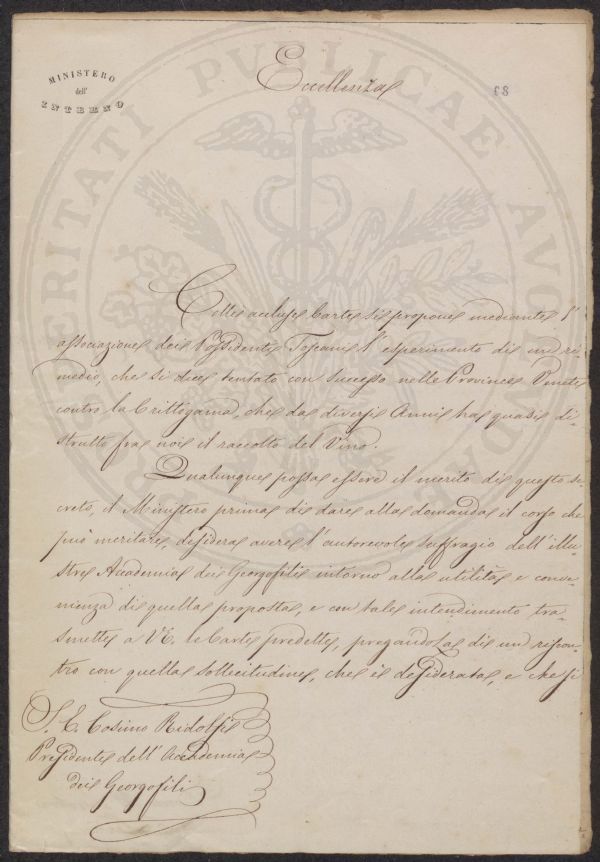 MINISTERO
dell'
INTERNO
Eccellenza
83
Colle accluse Carte si propone mediante l'
associazione dei Possidenti Toscani l'esperimento di un ri-
medio, che si dice tentato con successo nelle Province Venete
contro la Crittogama, che da diversi Anni ha quasi di-
strutto fra noi il raccolto del Vino.
Qualunque possa essere il merito di questo se-
creto, il Ministero prima di dare alla domanda il corso che
può meritare, desidera avere l'autorevole suffragio dell'illu-
stre Accademia dei Georgofili intorno alla utilità e conve-
nienza di quella proposta, e con tale intendimento tra-
smette a V.E. le Carte predette, pregandola di un riscon-
tro con quella sollecitudine, che è desiderata, e che si
S. E. Cosimo Ridolfi
Presidente dell'Accademia
dei Georgofili
PROSPERITATI PVBLICAE AVGENDAE